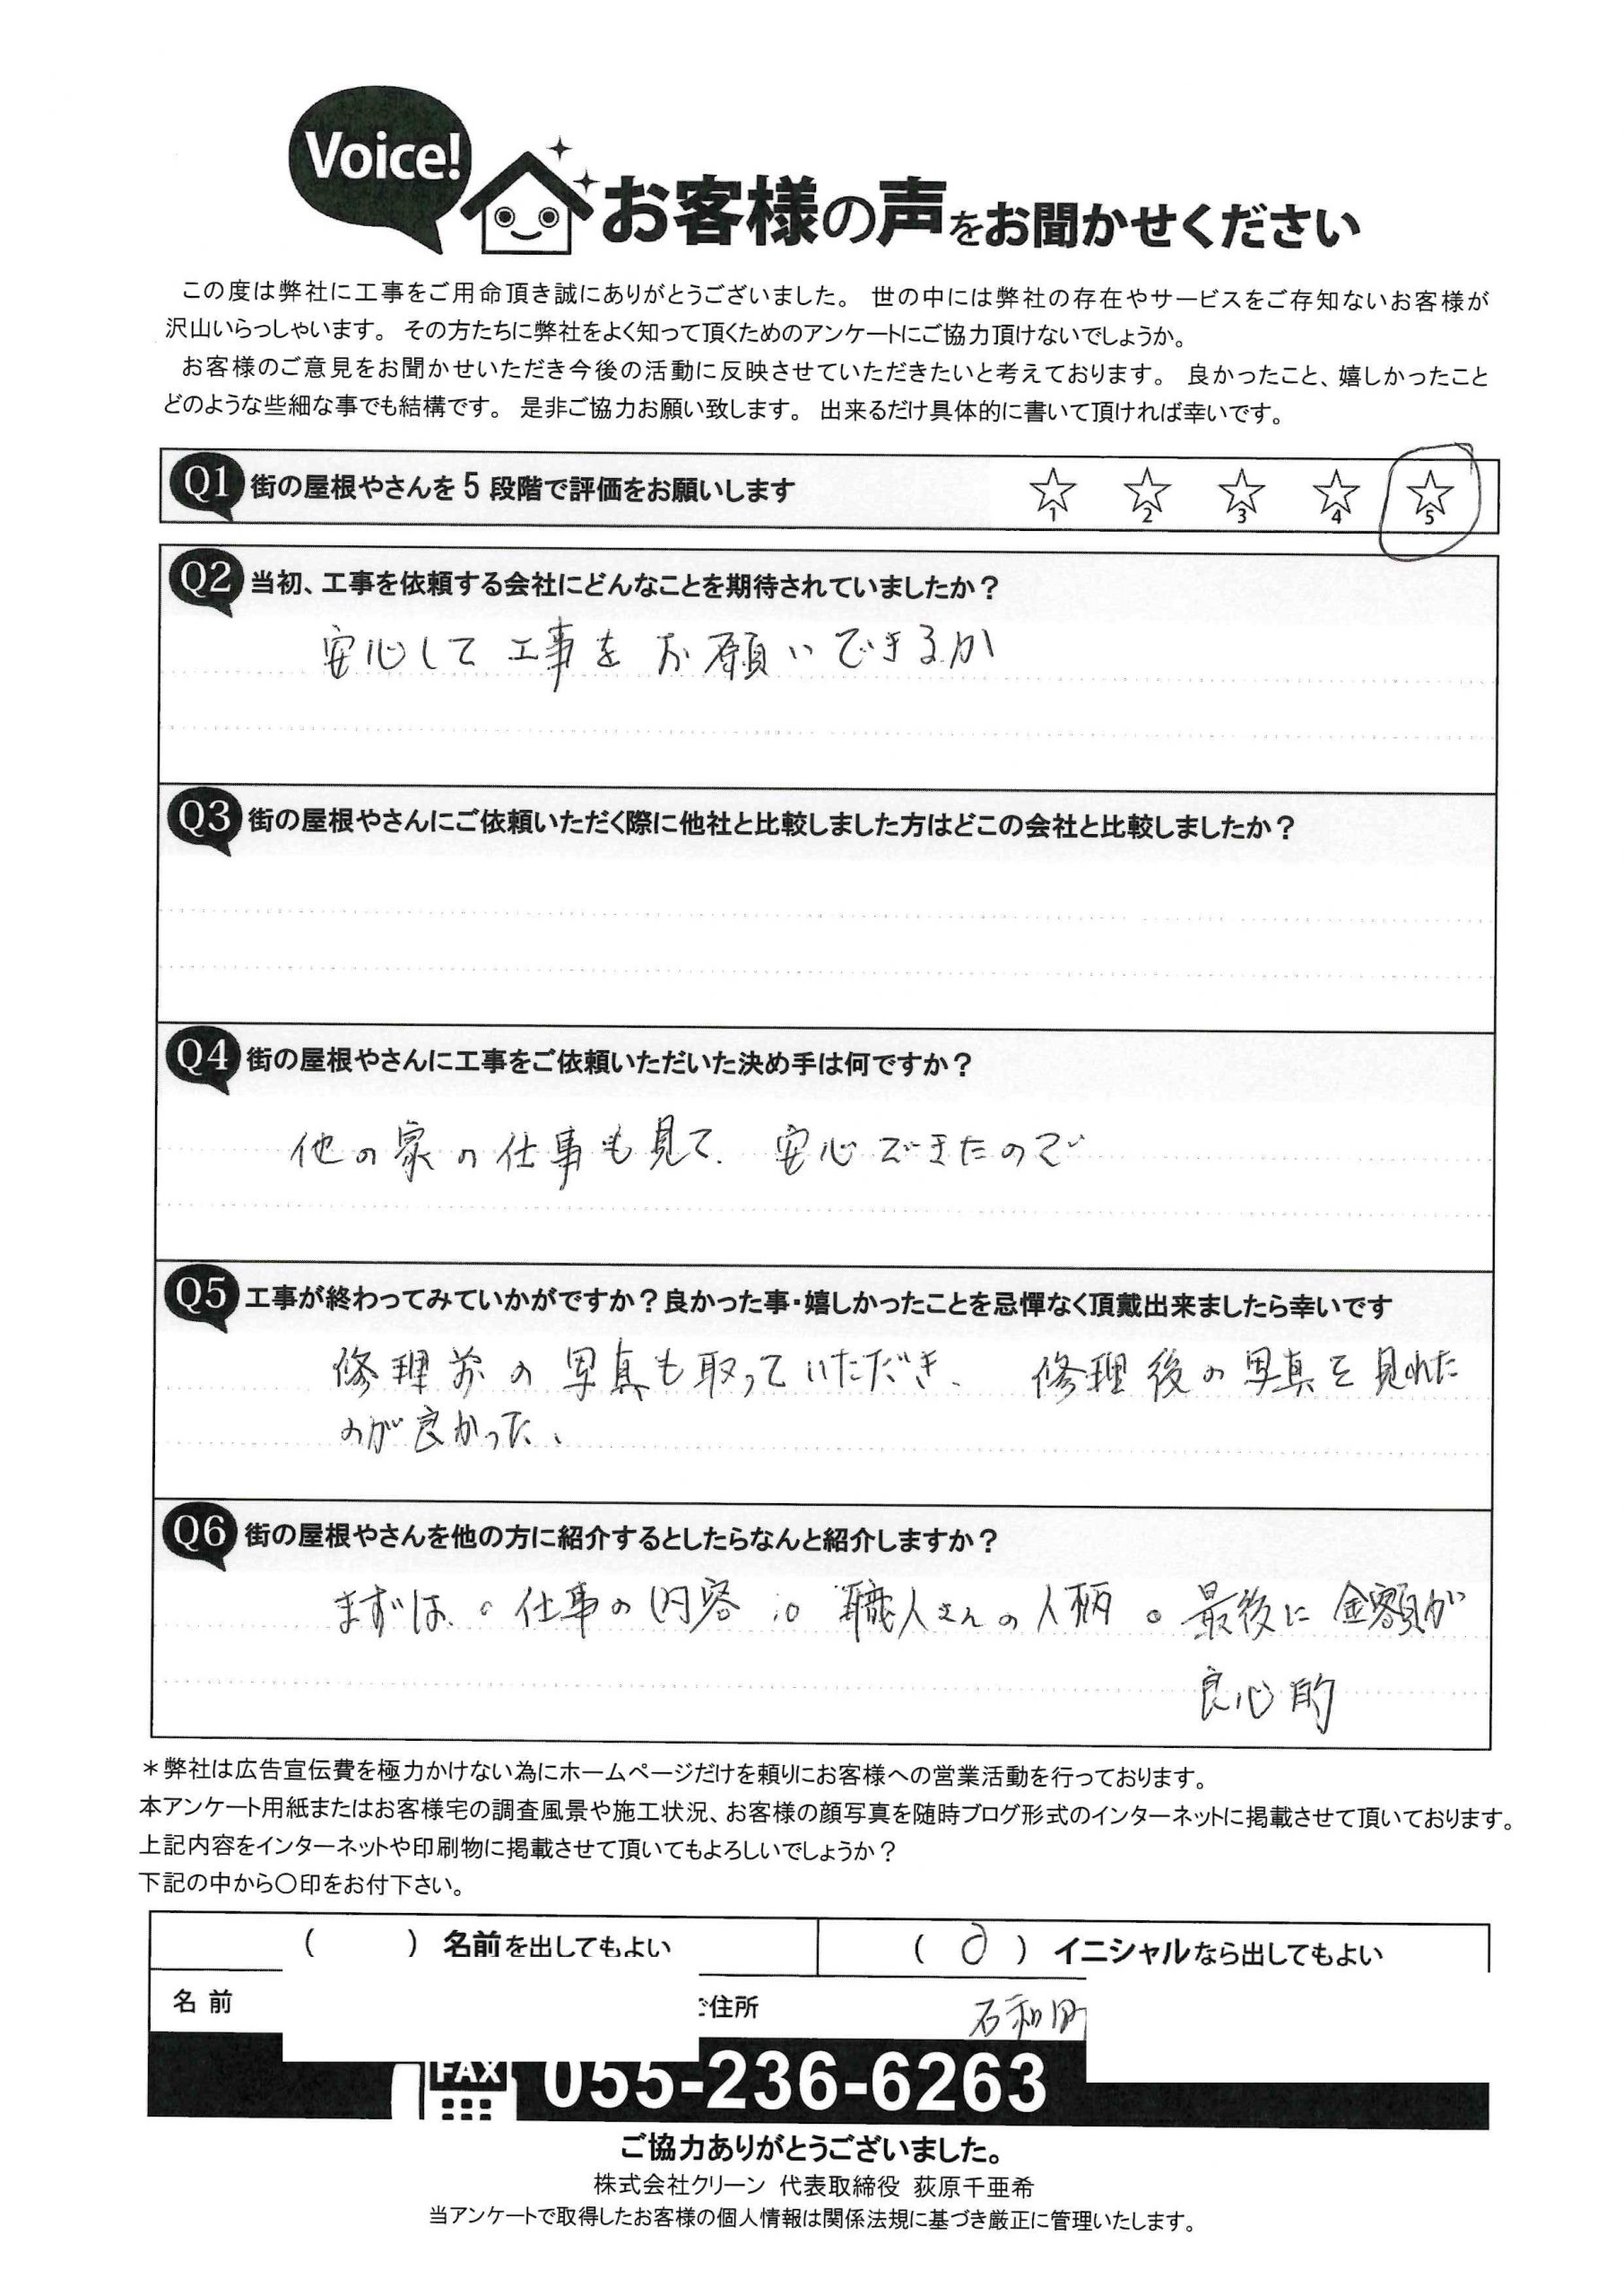 Voice!
お客様の声をお聞かせください
この度は弊社に工事をご用命頂き誠にありがとうございました。 世の中には弊社の存在やサービスをご存知ないお客様が
沢山いらっしゃいます。 その方たちに弊社をよく知って頂くためのアンケートにご協力頂けないでしょうか。
お客様のご意見をお聞かせいただき今後の活動に反映させていただきたいと考えております。 良かったこと、嬉しかったこと
どのような些細な事でも結構です。 是非ご協力お願い致します。 出来るだけ具体的に書いて頂ければ幸いです。
Q1 街の屋根やさんを5段階で評価をお願いします ☆1 ☆2 ☆3 ☆4 ☆5
Q2 当初、工事を依頼する会社にどんなことを期待されていましたか？
安心して工事をお願いできるか
Q3 街の屋根やさんにご依頼いただく際に他社と比較しました方はどこの会社と比較しましたか？
Q4 街の屋根やさんに工事をご依頼いただいた決め手は何ですか？
他の家の仕事も見て、安心できたので
Q5 工事が終わってみていかがですか？良かった事・嬉しかったことを忌憚なく頂戴出来ましたら幸いです
修理前の写真も取っていただき、 修理後の写真を見れた
のが良かった、
Q6 街の屋根やさんを他の方に紹介するとしたらなんと紹介しますか？
まずは、。仕事の内容 。職人さんの人柄 。最後に 金額が
良心的
＊弊社は広告宣伝費を極力かけない為にホームページだけを頼りにお客様への営業活動を行っております。
本アンケート用紙またはお客様宅の調査風景や施工状況、お客様の顔写真を随時ブログ形式のインターネットに掲載させて頂いております。
上記内容をインターネットや印刷物に掲載させて頂いてもよろしいでしょうか？
下記の中から〇印をお付下さい。
（ ）名前を出してもよい （ 〇 ）イニシャルなら出してもよい
名前 ご住所 石和町
FAX 055-236-6263
ご協力ありがとうございました。
株式会社クリーン 代表取締役 荻原千亜希
当アンケートで取得したお客様の個人情報は関係法規に基づき厳正に管理いたします。